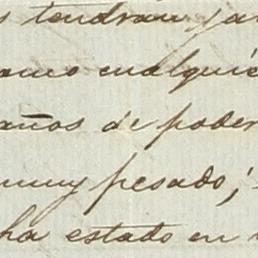 tendrán
como cualquie
años de poder
muy pesado;
ha estado en